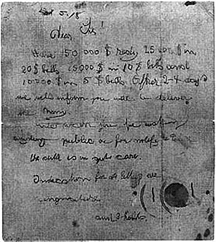 Dear Sir!
Have 50.000 $ redy 25.000 $ in
20 $ bills 15000 $ in 10 $ bills and
10000 $ in 5 $ bills After 2-4 days
we will inform you to deliver
the Mony.
We warn you for making
anyding public or for notify the
the child is in gut care.
Indication for all
are
and 3